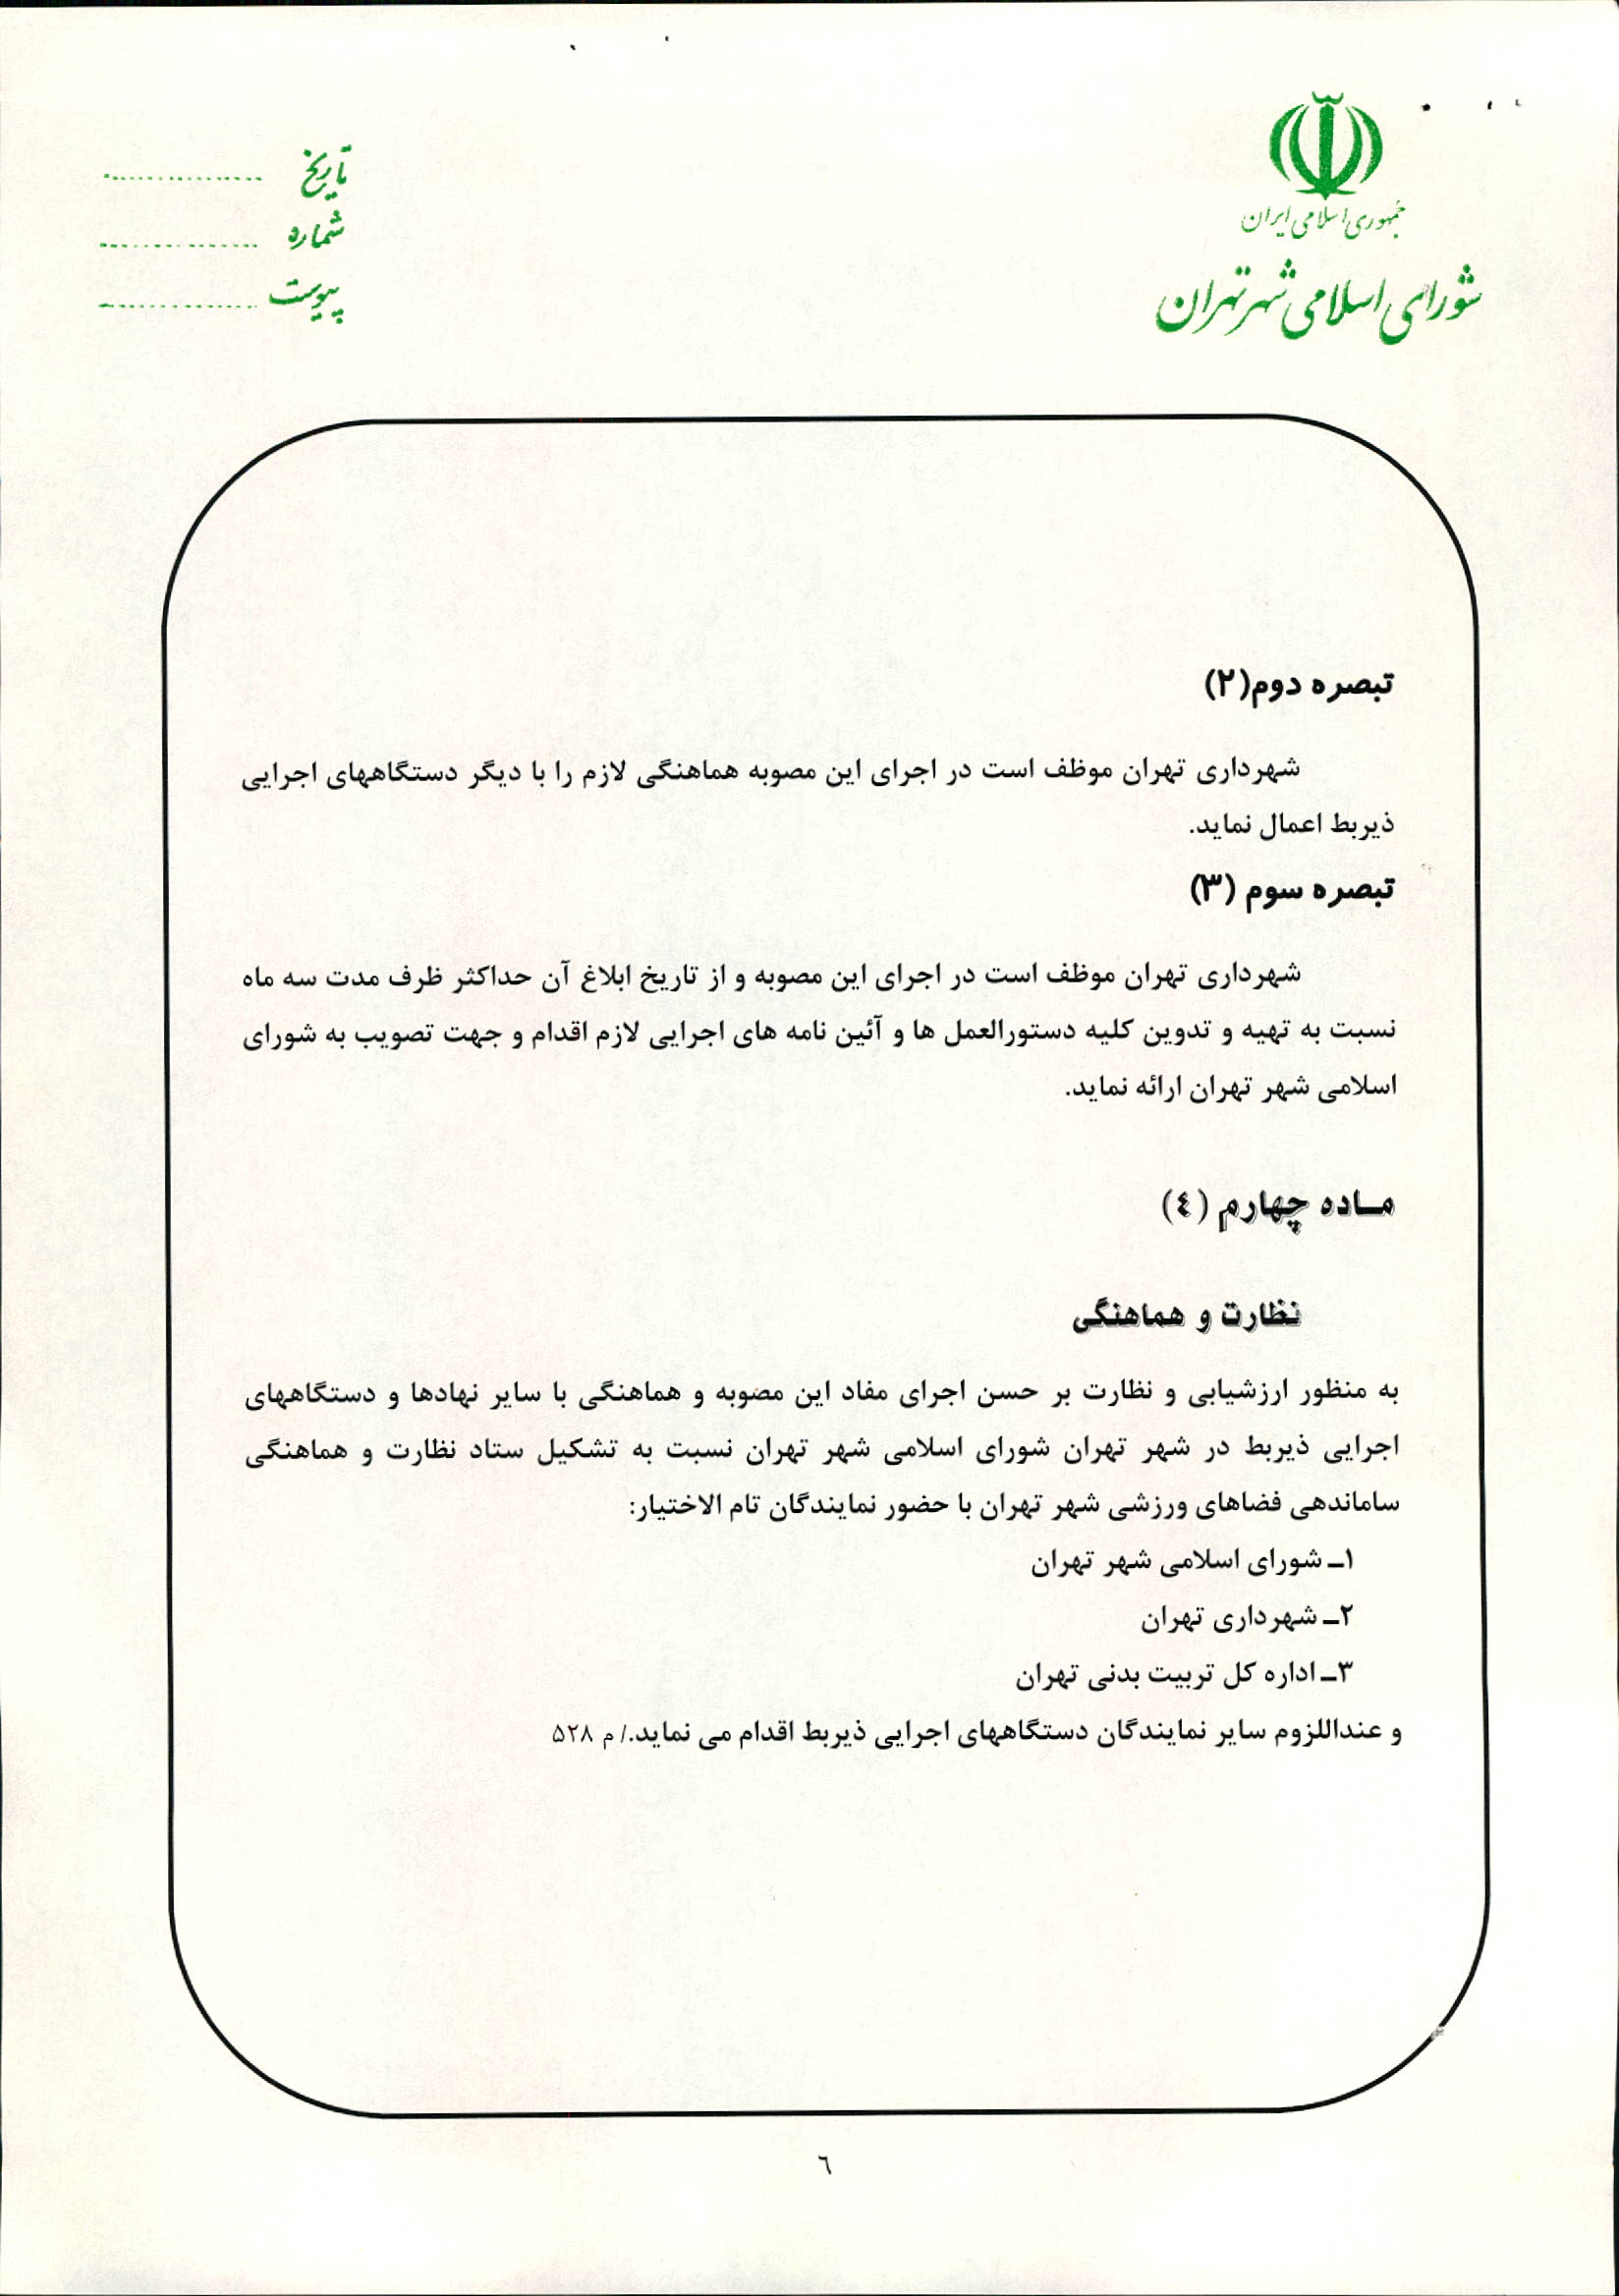 جمهوری اسلامی ایران
شورای اسلامی شهر تهران
تاریخ ................
شماره ................
پیوست ................
تبصره دوم(۲)
شهرداری تهران موظف است در اجرای این مصوبه هماهنگی لازم را با دیگر دستگاههای اجرایی
ذیربط اعمال نماید.
تبصره سوم (۳)
شهرداری تهران موظف است در اجرای این مصوبه و از تاریخ ابلاغ آن حداکثر ظرف مدت سه ماه
نسبت به تهیه و تدوین کلیه دستورالعمل ها و آئین نامه های اجرایی لازم اقدام و جهت تصویب به شورای
اسلامی شهر تهران ارائه نماید.
مــاده چهارم (٤)
نظارت و هماهنگی
به منظور ارزشیابی و نظارت بر حسن اجرای مفاد این مصوبه و هماهنگی با سایر نهادها و دستگاههای
اجرایی ذیربط در شهر تهران شورای اسلامی شهر تهران نسبت به تشکیل ستاد نظارت و هماهنگی
ساماندهی فضاهای ورزشی شهر تهران با حضور نمایندگان تام الاختیار:
۱ـ شورای اسلامی شهر تهران
۲ـ شهرداری تهران
۳ـ اداره کل تربیت بدنی تهران
و عنداللزوم سایر نمایندگان دستگاههای اجرایی ذیربط اقدام می نماید./ م ۵۲۸
٦